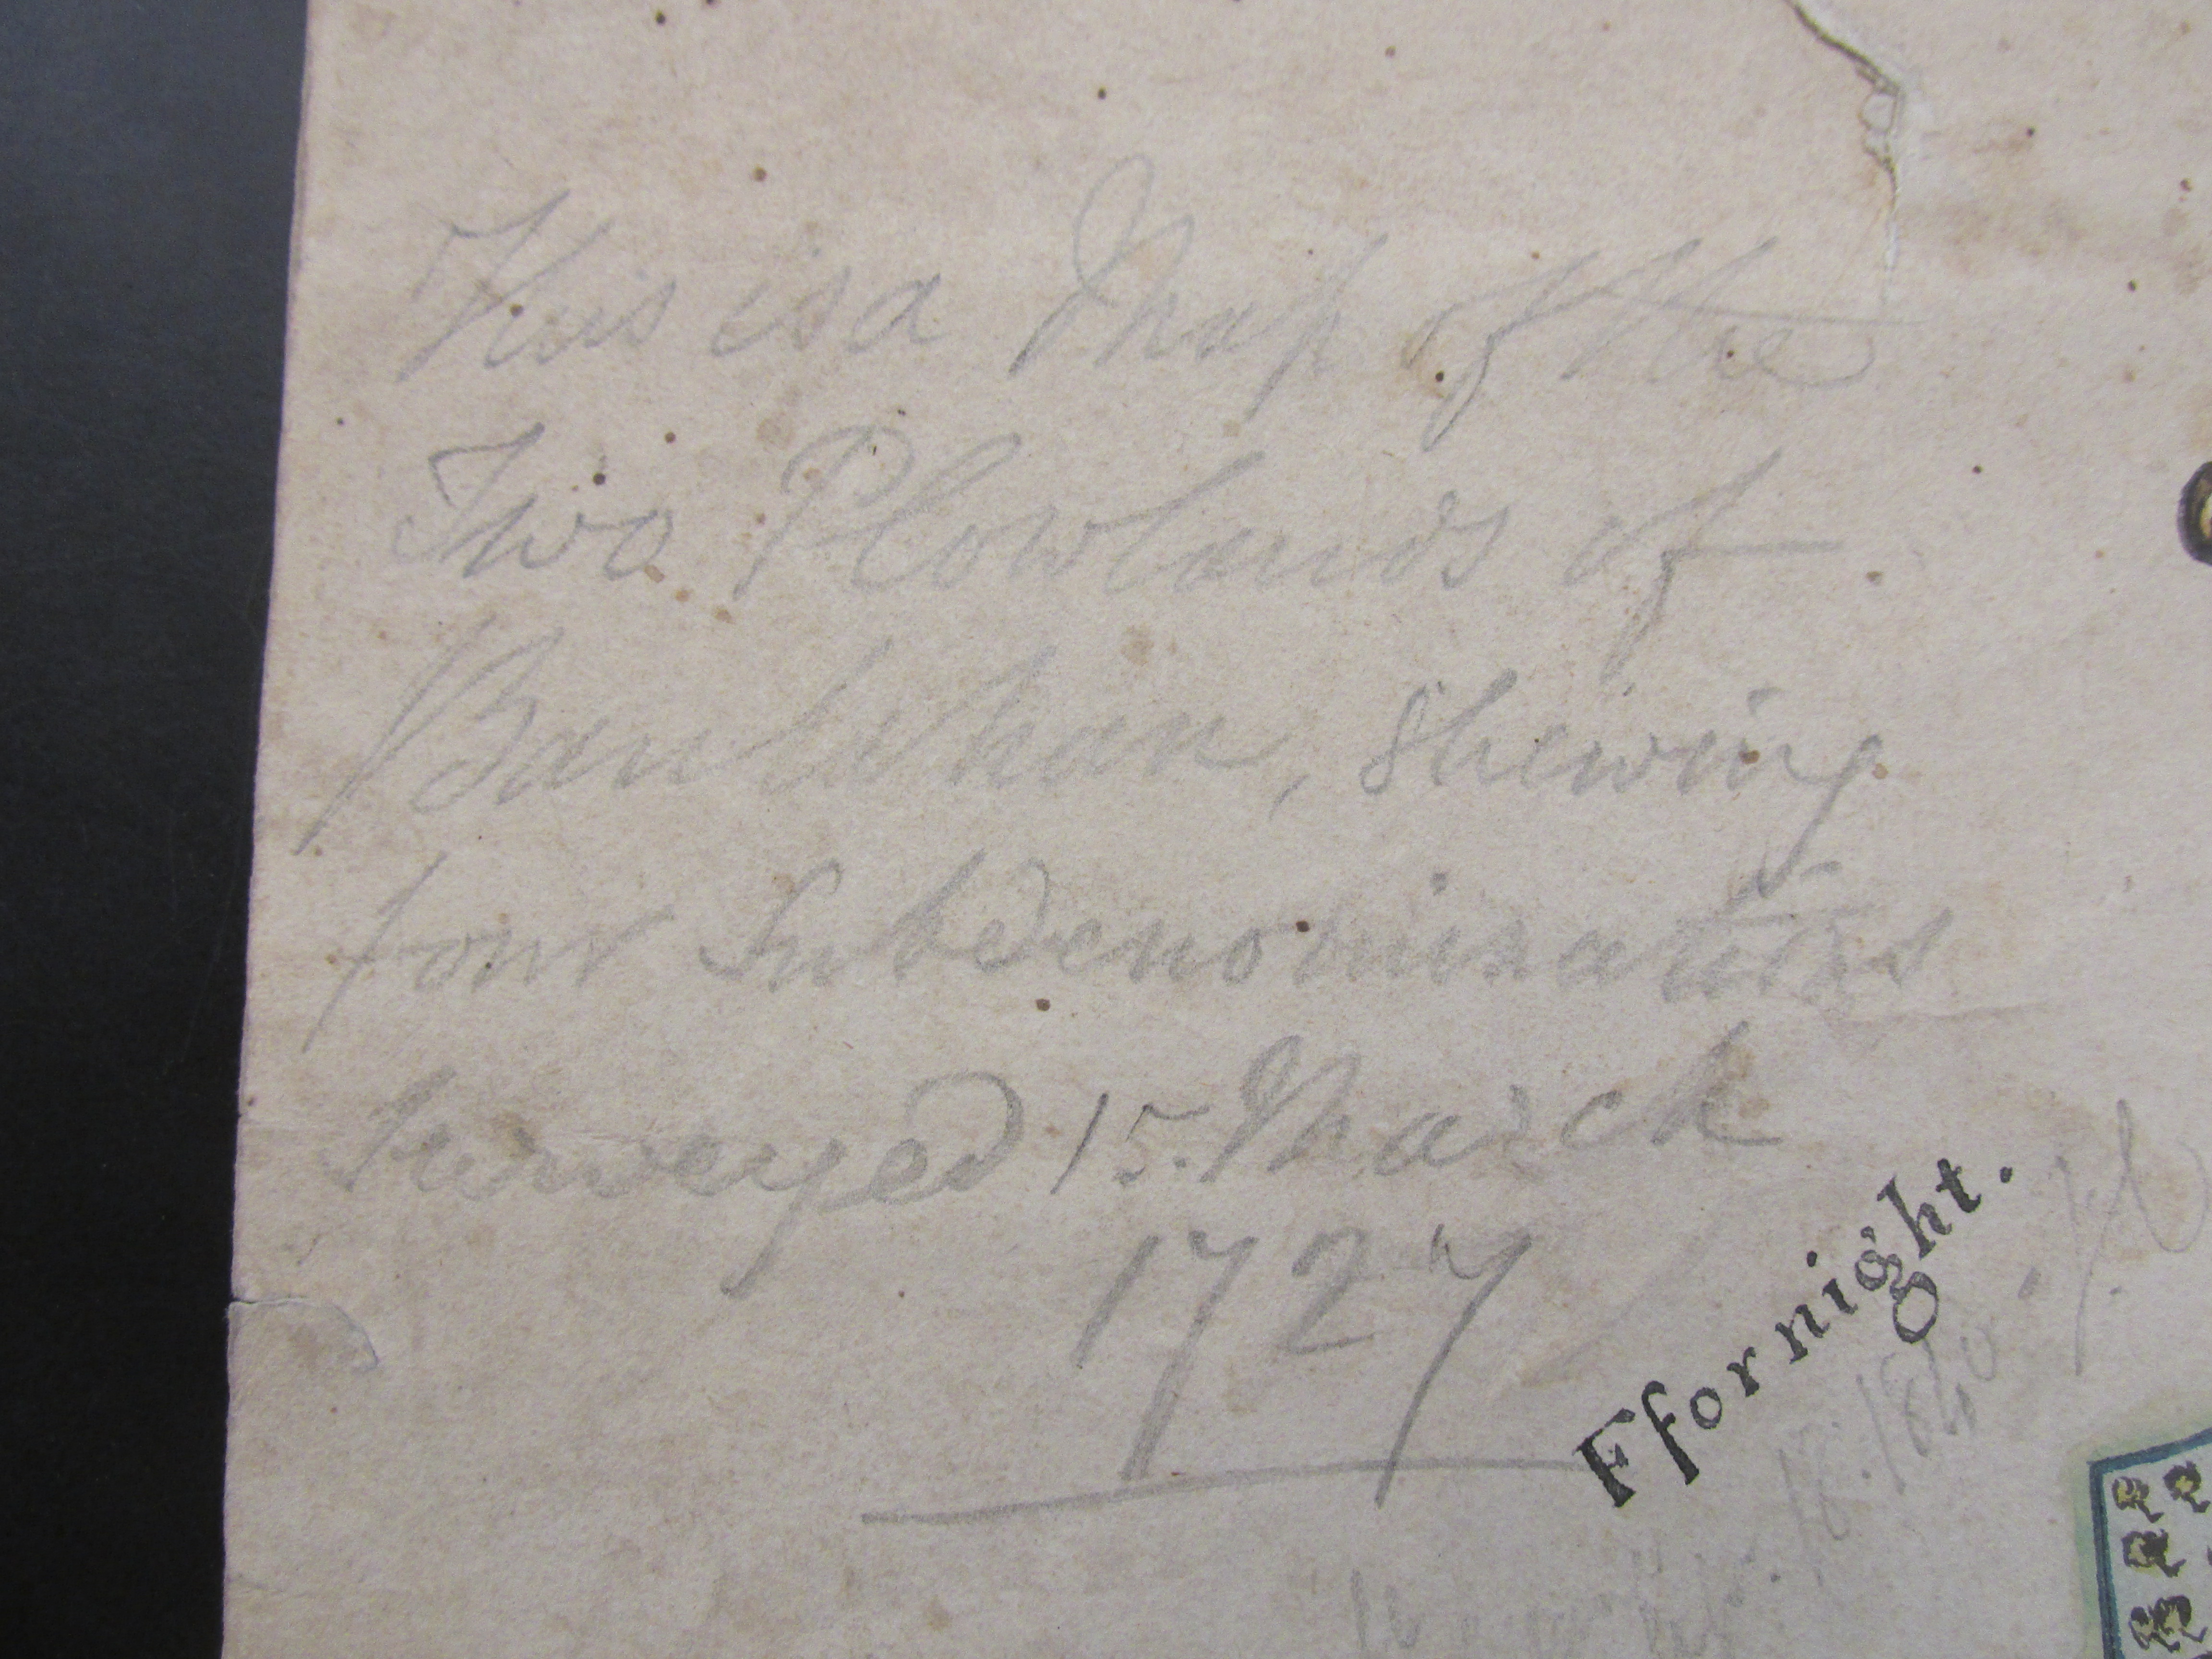 This is a Map of the
Two Plowlands of
Banlehan, Shewing
four Subdenominatins
Surveyed 15. March
1727
Ffornight.